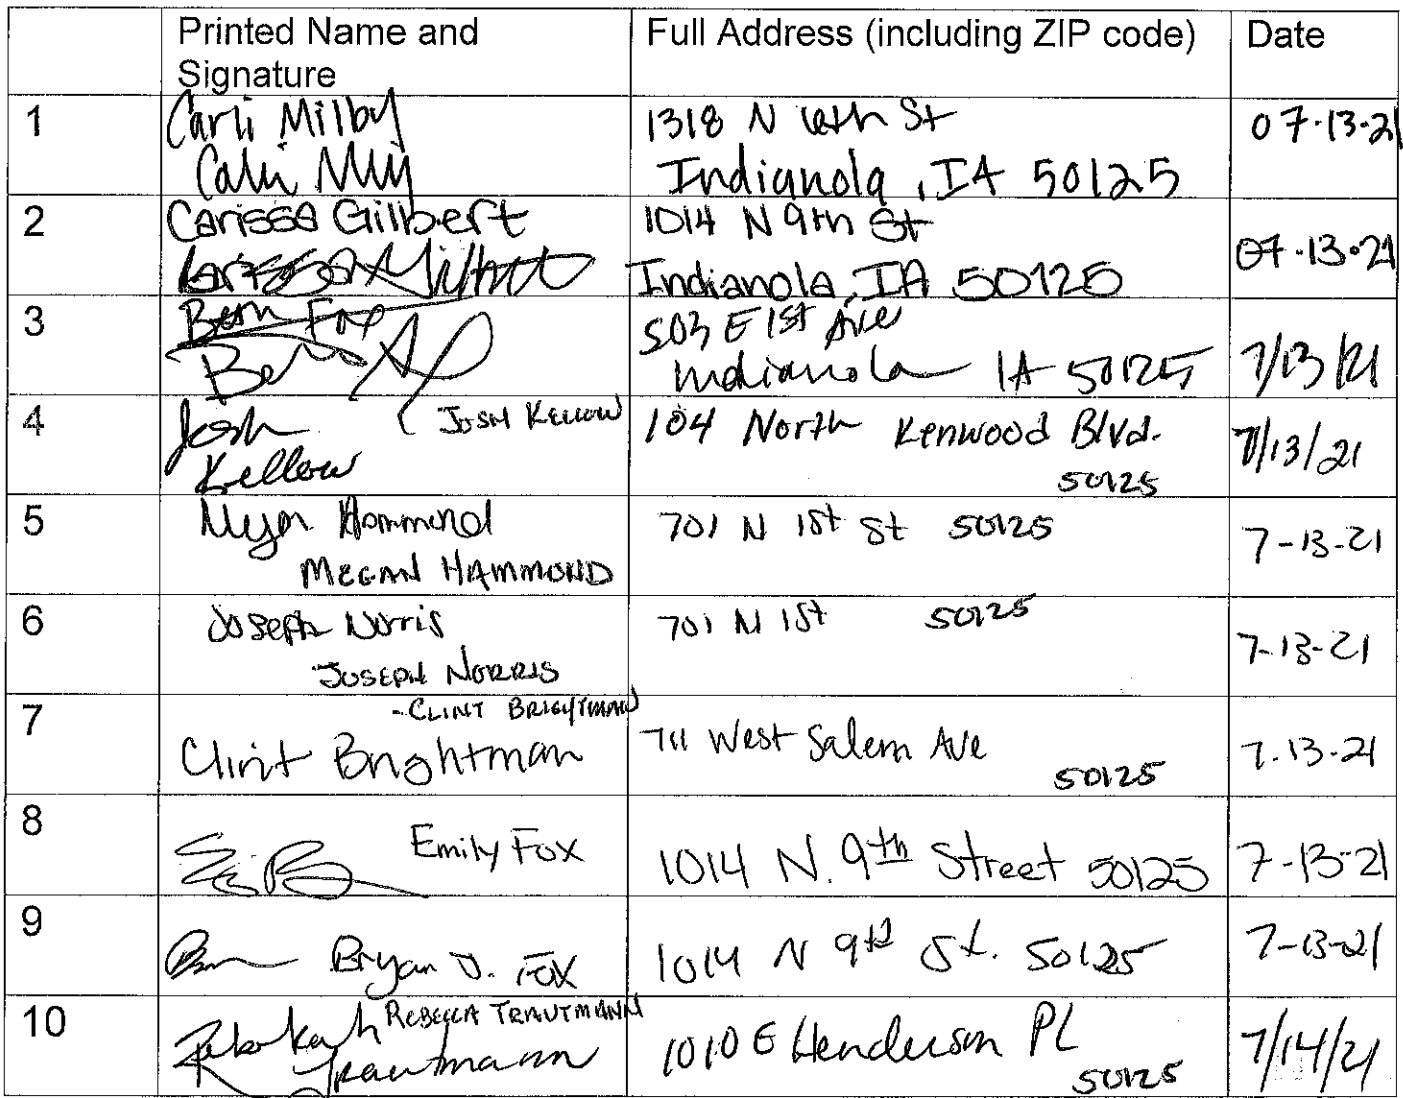 Printed Name and Signature
Full Address (including ZIP code)
Date
1
Carli Milby
1318 N St
Indianola, IA 50125
07-13-21
2
Carissa Gilbert
Carissa Gilbert
1014 N 9th St
Indianola, IA 50125
07-13-21
3
Fox
503 E 1st Ave
Indianola IA 50125
7/13/21
4
Josh
Kellow
JOSH KELLOW
104 North Kenwood Blvd.
50125
7/13/21
5
Hammond
MEGAN HAMMOND
701 N 1st St 50125
7-13-21
6
Joseph Norris
JOSEPH NORRIS
701 N 1st 50125
7-13-21
7
-CLINT BRIGHTMAN
Clint Brightman
711 West Salem Ave
50125
7.13-21
8
Emily Fox
1014 N. 9th Street 50125
7-13-21
9
Bryan J. Fox
1014 N 9th St. 50125
7-13-21
10
REBECCA TRAUTMANN
Rebekah
Trautmann
1010 E Henderson PL
50125
7/14/21